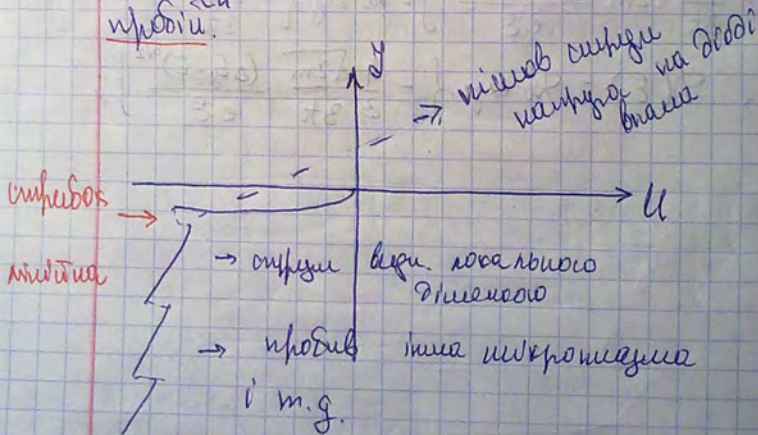 пробій.
J
→ пішов струм
напруга на діоді
впала
U
стрибок
→ струм вири. локального
ділянкою
→ пробив інша мікроплазма
і т.д.